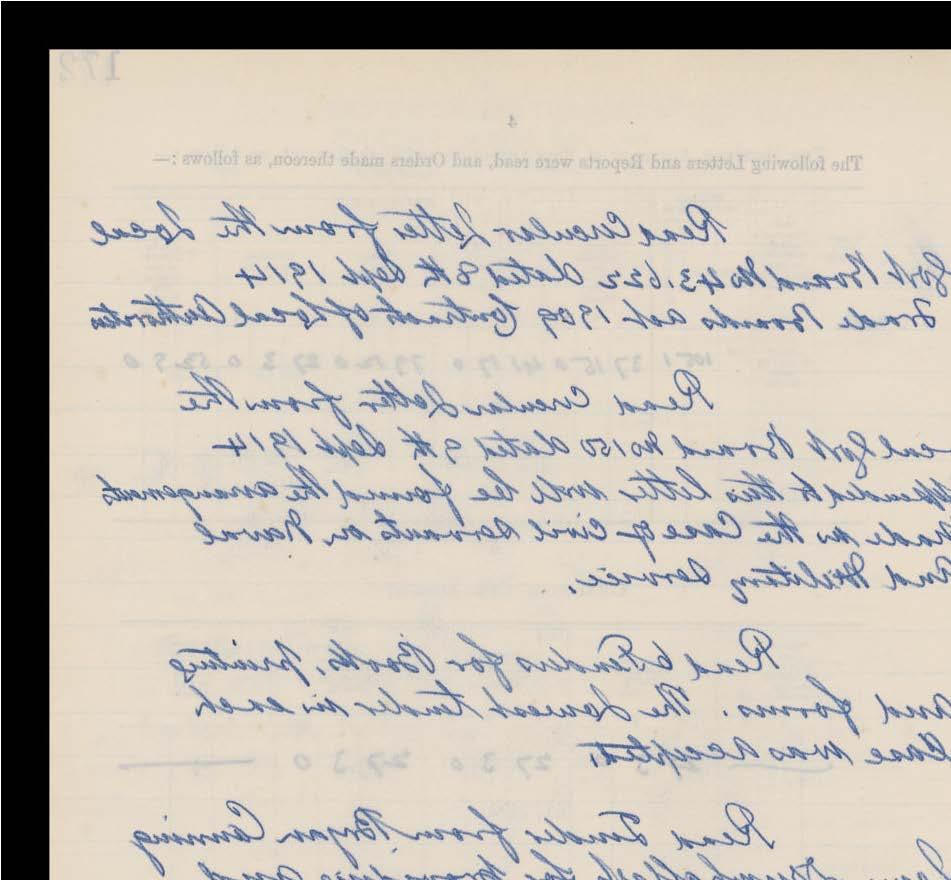 172
4
The following Letters and Reports were read, and Orders made thereon, as follows :—
Read Circular Letter from the Local
Govt Board No 43.632 dated 8th Sept 1914
Trade Boards Act 1909 Contracts of Local Authorities
Read Circular Letter from the
Govt Board No 150 dated 9th Sept 1914
to this letter will be found the arrangements
made in the Case of Civil Servants on Naval
and Military Service.
Read 6 Tenders for Books, printing
and forms. The Lowest tender in each
Case was accepted.
Read Tender from Bryan Canning